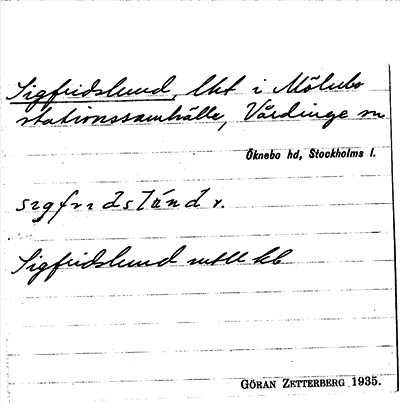 Sigfridslund, lht i Mölnbo
stationssamhälle, Vårdinge sn
Öknebo hd, Stockholms l.
Sigfridslund mtll kb
GÖRAN ZETTERBERG 1935.